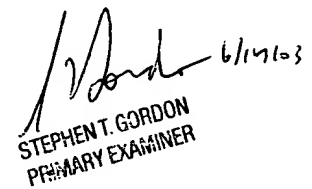 6/17/03
STEPHEN T. GORDON
PRIMARY EXAMINER